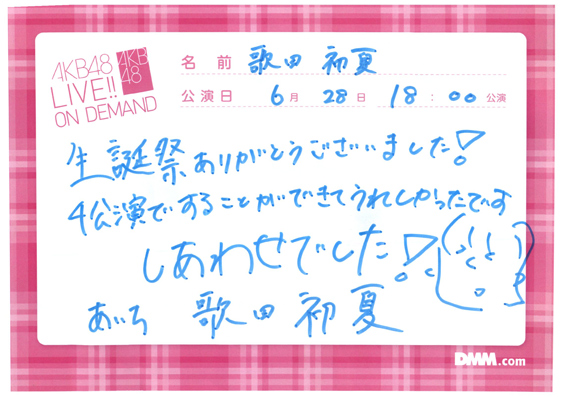 AKB48
LIVE!!
ON DEMAND
AKB
48
名前 歌田 初夏
公演日 6月 28日 18:00 公演
生誕祭ありがとうございました!
4公演ですることができてうれしかったです
しあわせでした!
あいち 歌田 初夏
DMM.com